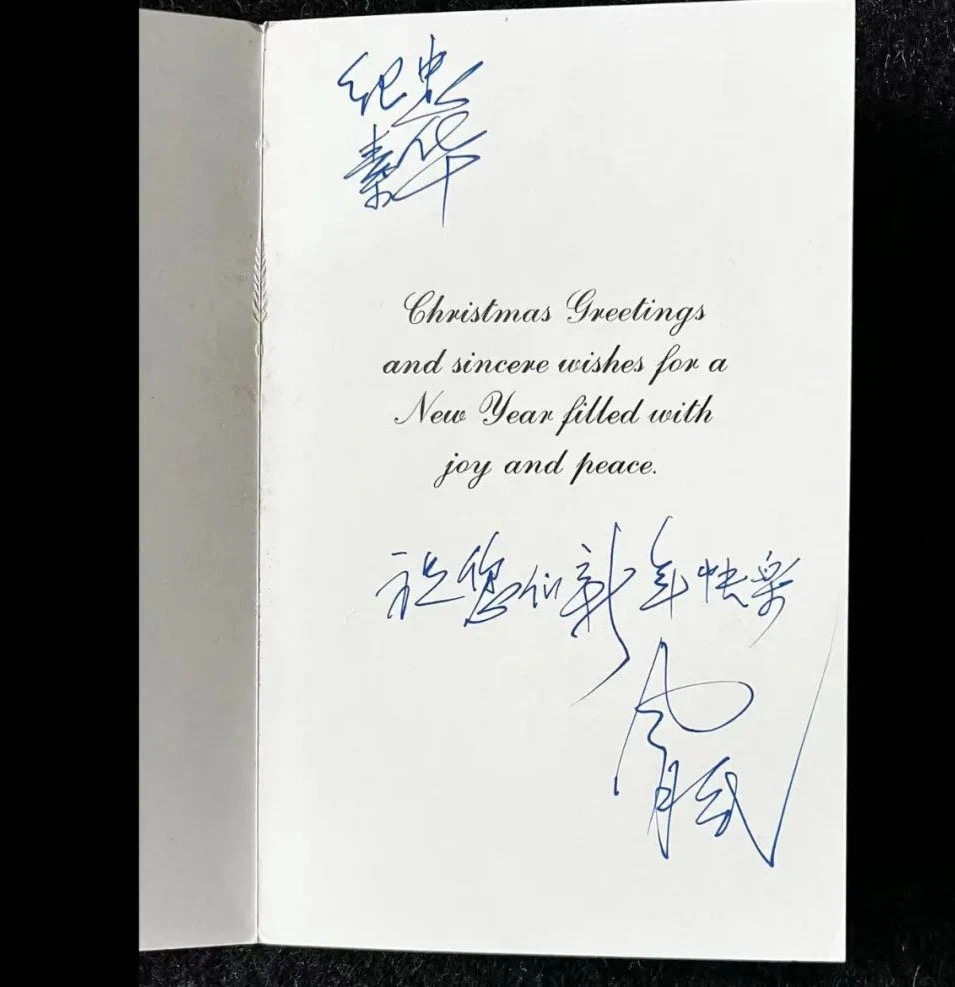 纪忠
素华
Christmas Greetings
and sincere wishes for a
New Year filled with
joy and peace.
祝您们新年快乐